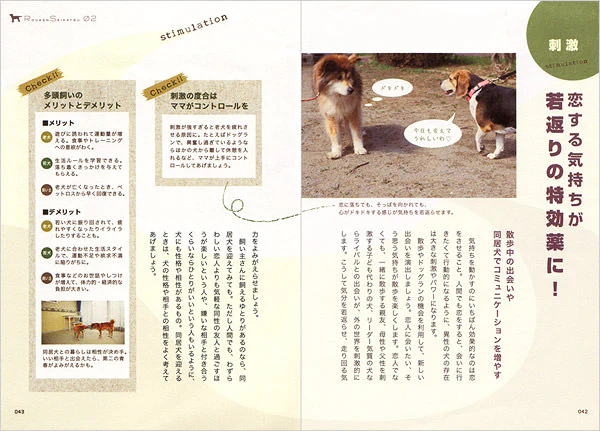 刺激
stimulation
恋する気持ちが
若返りの特効薬に！
ドキドキ
今日も会えて
うれしいわ♡
恋に落ちても、そっぽを向かれても、
心がドキドキする感じが気持ちを若返らせます。
散歩中の出会いや
同居犬でコミュニケーションを増やす
気持ちを動かすのにいちばん効果的なのは恋
をさせること。人間でも恋をすると、会いに行
きたくて行動的になるように、異性の犬の存在
は大きな刺激やパワーになります。
散歩やドッグランの機会を利用して、新しい
出会いを演出しましょう。恋人に会いたい、そ
う思う気持ちが散歩を楽しくします。恋人でな
くても、一緒に散歩する親友、母性や父性を刺
激する子ども代わりの犬、リーダー気質の犬な
らライバルとの出会いが、外の世界を刺激的に
します。こうして気分を若返らせ、走り回る気
042
Rouken Seikatsu 02
stimulation
力をよみがえらせましょう。
飼い主さんに飼えるゆとりがあるのなら、同
居犬を迎えてみても。ただし人間でも、わずら
わしい恋人よりも気軽な同性の友人と過ごすほ
うが楽しいという人や、嫌いな相手と付き合う
くらいならひとりがいいという人もいるように、
犬にも性格や相性があるもの。同居犬を迎える
ときは、犬の性格や相手との相性をよく考えて
あげましょう。
Check!!
刺激の度合は
ママがコントロールを
刺激が強すぎると老犬を疲れさせ
る原因に。たとえばドッグラン
で、興奮し過ぎているような
らほかの犬から離して休憩を入
れるなど、ママが上手にコント
ロールしてあげましょう。
Check!!
多頭飼いの
メリットとデメリット
■メリット
老犬 遊びに誘われて運動量が増
える。食事やトレーニング
への意欲がわく。
若犬 生活ルールを学習できる。
落ち着くきっかけを与えて
もらえる。
飼い主 老犬が亡くなったとき、ペ
ットロスから早く回復できる。
■デメリット
老犬 若い犬に振り回されて、疲
れやすくなったりイライラ
したりすることも。
若犬 老犬に合わせた生活スタイ
ルで、運動不足や欲求不満
に陥りがちに。
飼い主 食事などのお世話やしつけ
が増えて、体力的・経済的な
負担が大きい。
同居犬との暮らしは相性が決め手。
いい相手と出会えたら、第二の青
春がよみがえるかも。
043